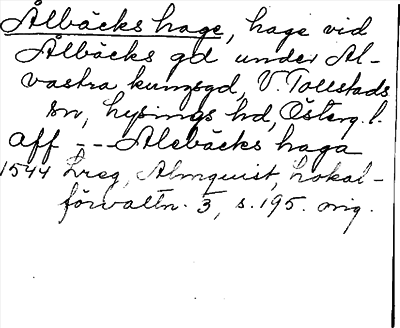 Ålbäcks hage, hage vid
Ålbäcks gd under Al-
vastra kungsgd, V. Tollstads
sn, Lysings hd, Österg. l.
aff - - - Alebäcks haga
1544 Lreg, Almquist, Lokal-
förvaltn. 3, s. 195. orig.